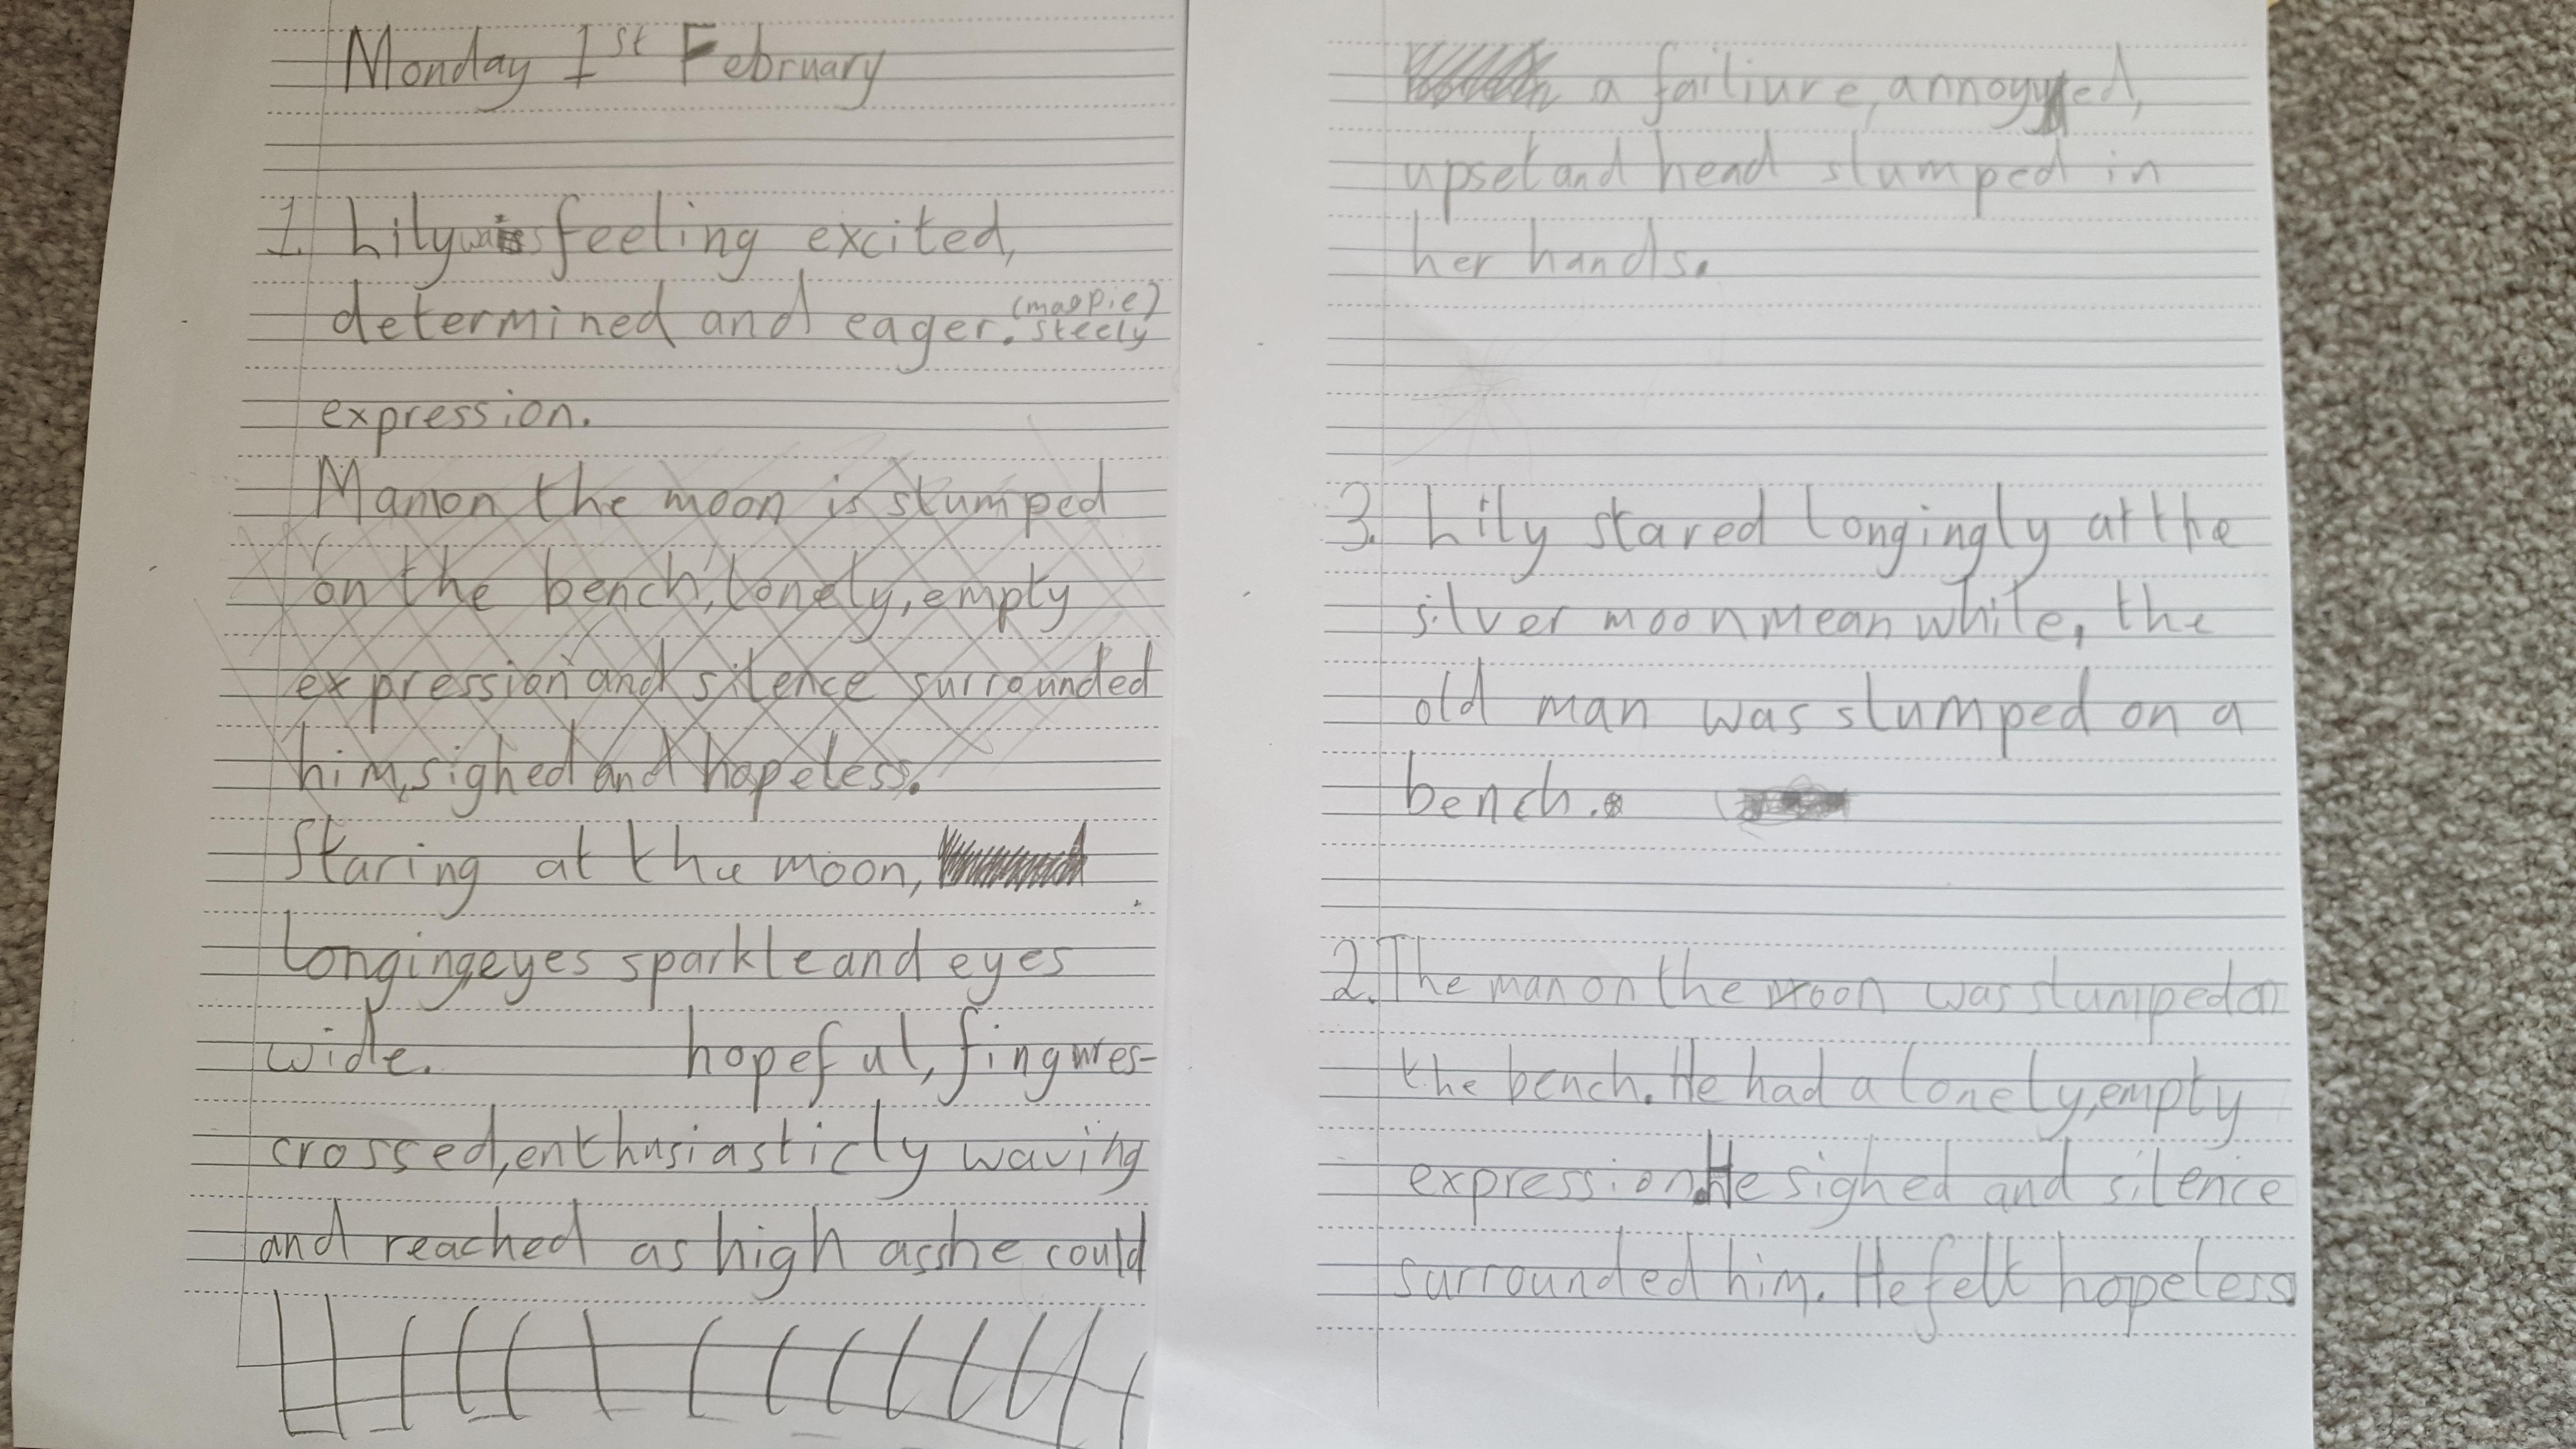 Monday 1st February
1. Lily was feeling excited,
determined and eager. (magpie) steely
expression.
Man on the moon is slumped
on the bench, lonely, empty
expression and silence surrounded
him, sighed and hopeless.
Staring at the moon,
longing, eyes sparkle and eyes
wide. hopeful, fingures-
crossed, enthusiasticly waving
and reached as high as she could
a failiure, annoyed,
upset and head slumped in
her hands.
3. Lily stared longingly at the
silver moon meanwhile, the
old man was slumped on a
bench.
2. The man on the moon was slumped on
the bench. He had a lonely, empty
expression. He sighed and silence
surrounded him. He felt hopeless.